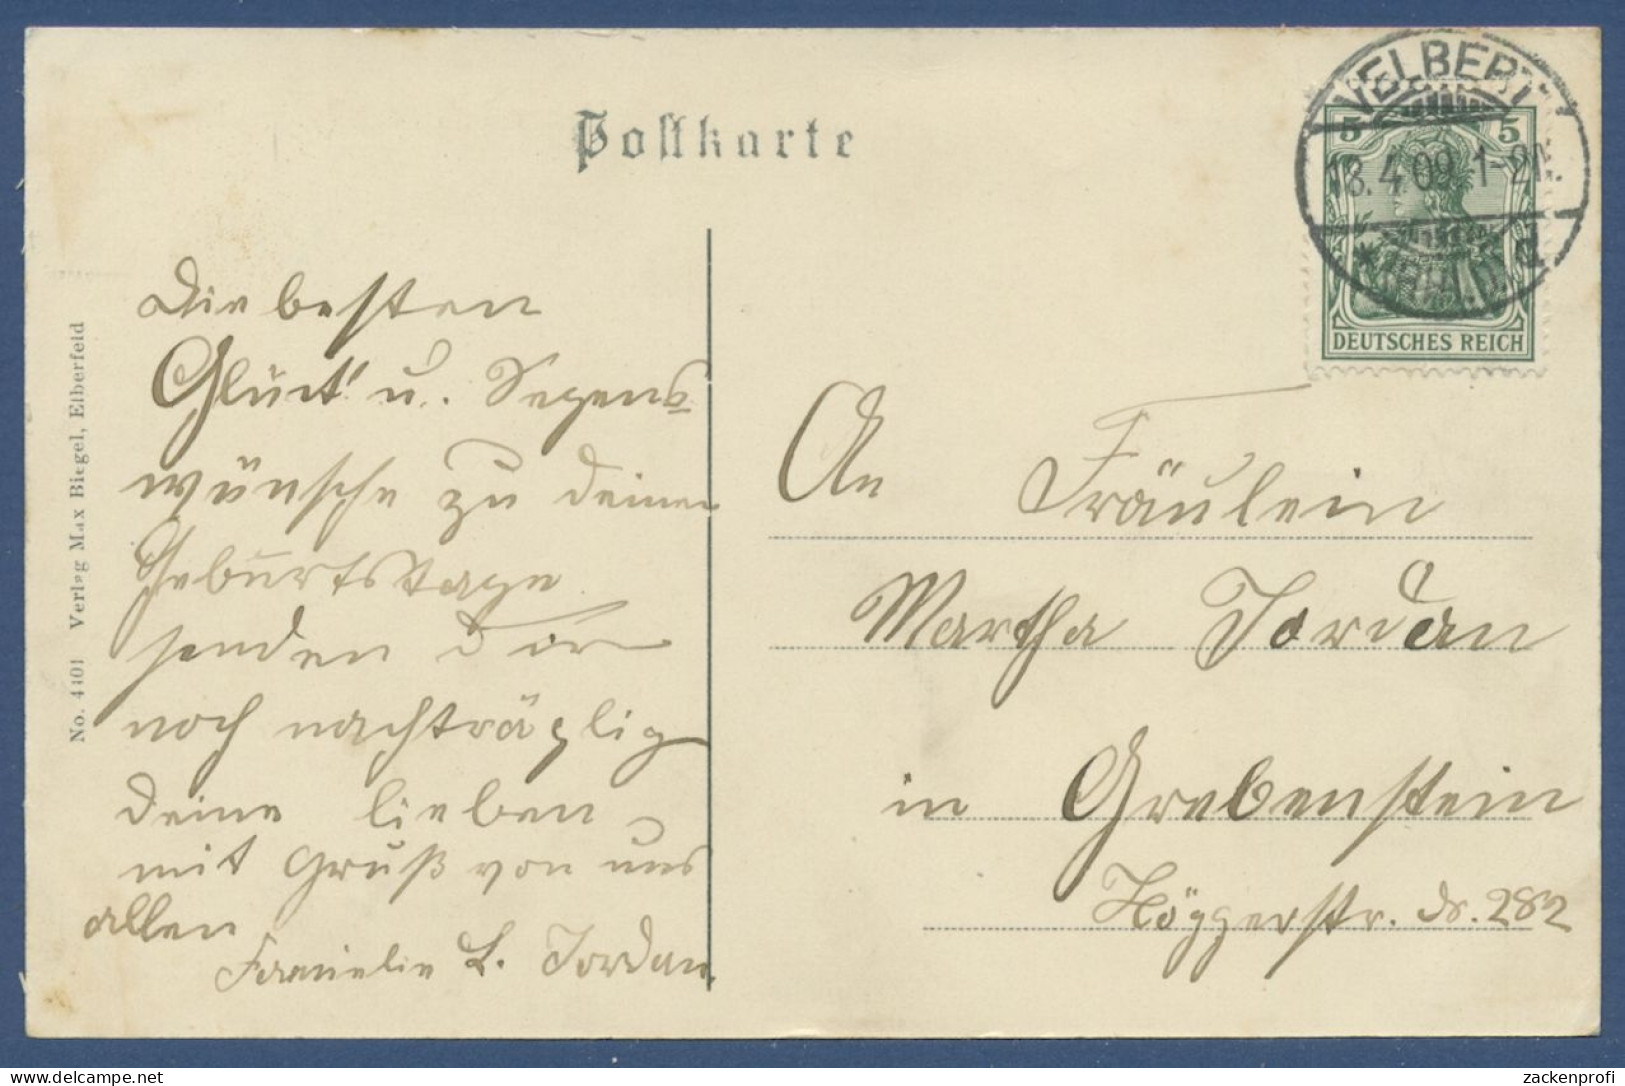 Postkarte
VELBERT
18.4.09.1-2N.
* (RHLD.) d
5 5
DEUTSCHES REICH
No. 4401 Verlag Max Biegel, Elberfeld
Die besten
Glück u. Segens
wünsche zu deinen
Geburtstage
senden Dir
noch nachträglig
deine lieben
mit Gruß von uns
allen
Familie L. Jordan
An Fräulein
Martha Jordan
in Grebenstein
282
zackenprofi